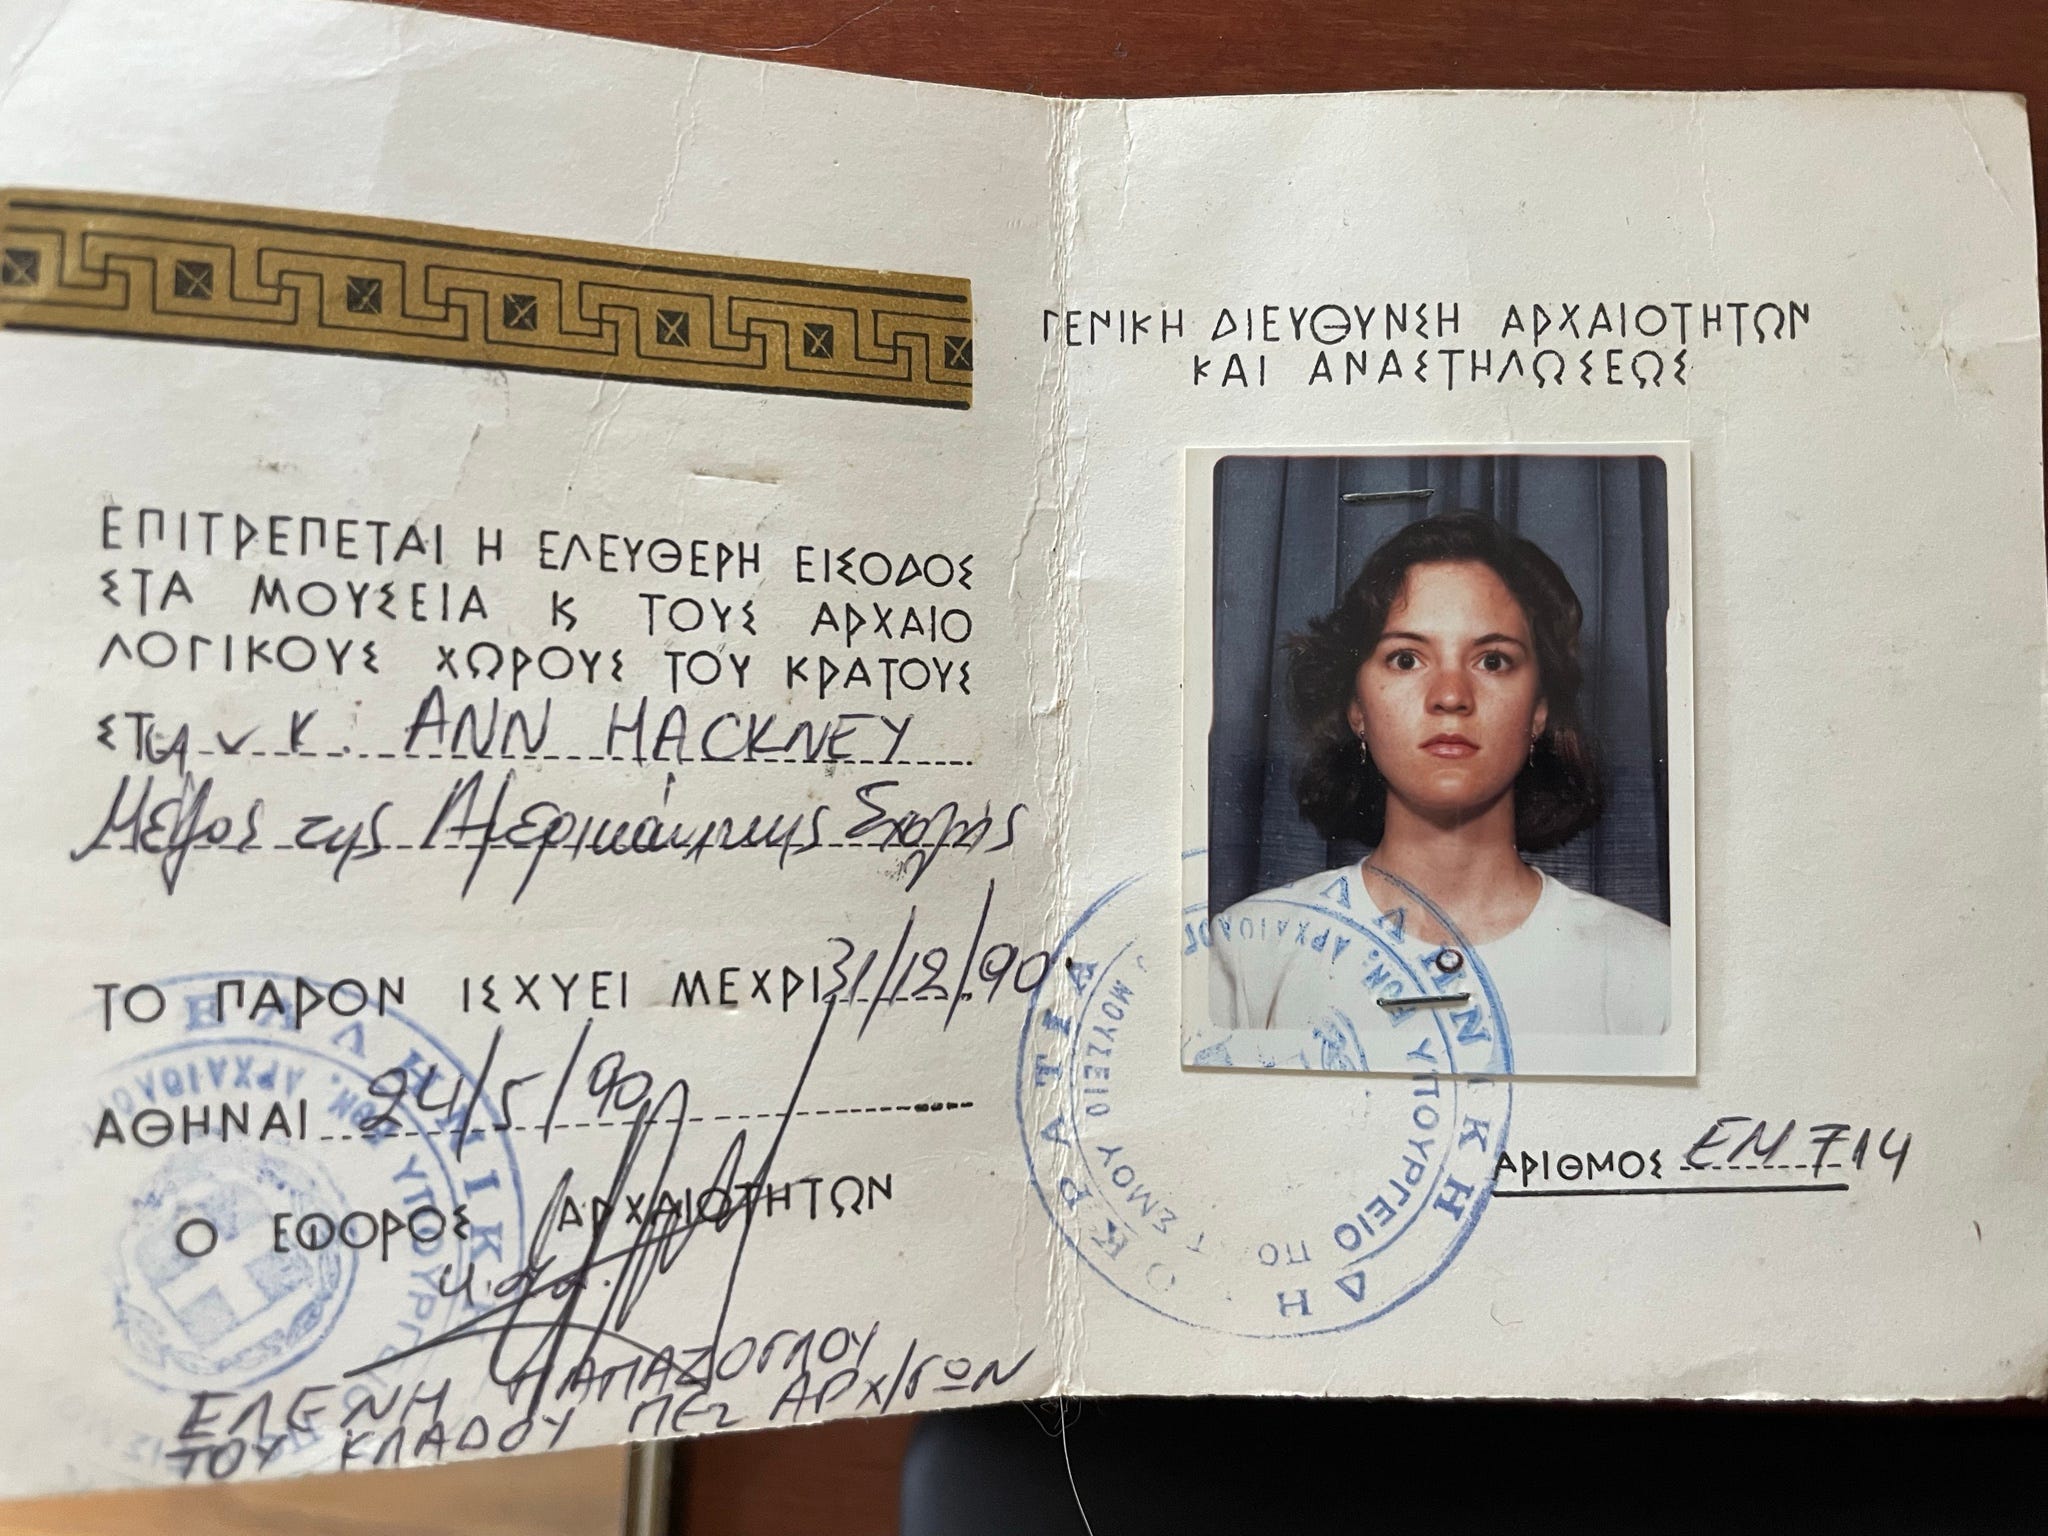 ΕΠΙΤΡΕΠΕΤΑΙ Η ΕΛΕΥΘΕΡΗ ΕΙΣΟΔΟΣ
ΣΤΑ ΜΟΥΣΕΙΑ Κ ΤΟΥΣ ΑΡΧΑΙΟ
ΛΟΓΙΚΟΥΣ ΧΩΡΟΥΣ ΤΟΥ ΚΡΑΤΟΥΣ
ΣΤην κ. ANN HACKNEY
Μέλος της Αμερικάνικης Σχολής
ΤΟ ΠΑΡΟΝ ΙΣΧΥΕΙ ΜΕΧΡΙ 31/12/90
ΑΘΗΝΑΙ 24/5/90
Ο ΕΦΟΡΟΣ ΑΡΧΑΙΟΤΗΤΩΝ
ΕΛΕΝΗ ΠΑΠΑΖΟΓΛΟΥ
ΤΟΥ ΚΛΑΔΟΥ ΠΕ2 ΑΡΧ/ΓΩΝ
ΓΕΝΙΚΗ ΔΙΕΥΘΥΝΣΗ ΑΡΧΑΙΟΤΗΤΩΝ
ΚΑΙ ΑΝΑΣΤΗΛΩΣΕΩΣ
ΕΛΛΗΝΙΚΗ ΔΗΜΟΚΡΑΤΙΑ
ΥΠΟΥΡΓΕΙΟ ΠΟΛΙΤΙΣΜΟΥ
ΑΡΙΘΜΟΣ ΕΜ 714